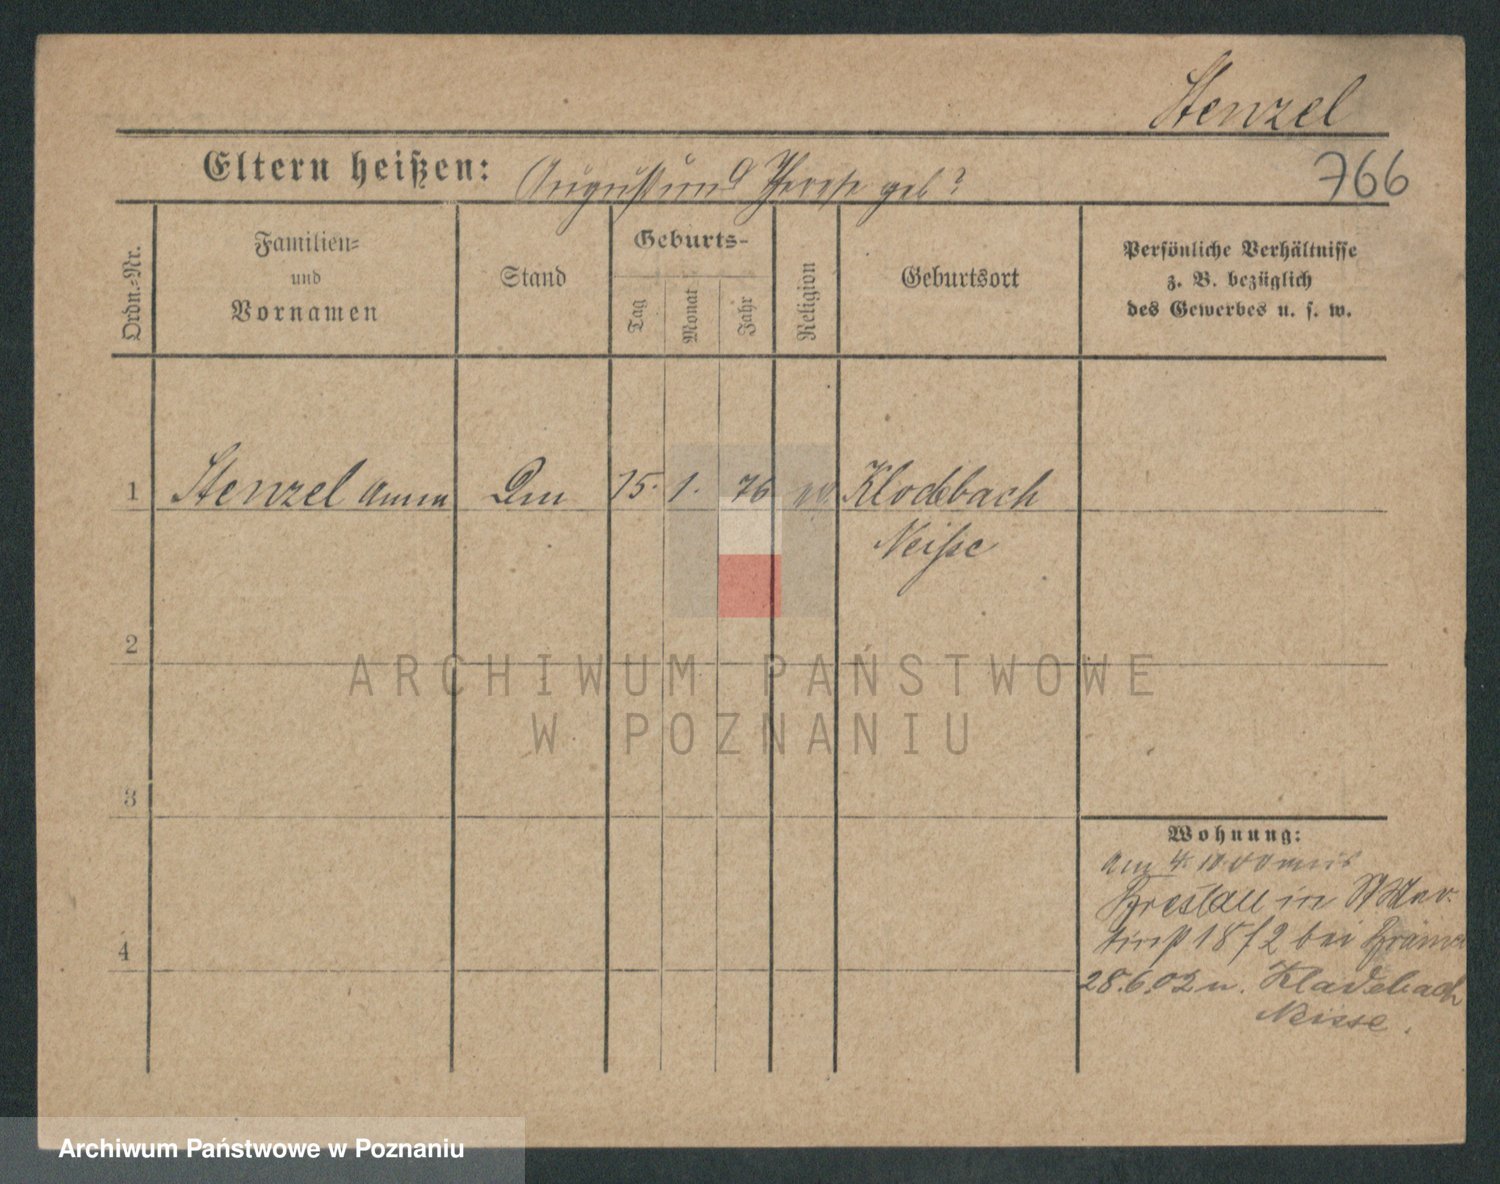 Stenzel
Eltern heißen: August und Therese geb?
766
Ordn.-Nr.
Familien-
und
Vornamen
Stand
Geburts-
Tag
Monat
Jahr
Religion
Geburtsort
Persönliche Verhältnisse
z. B. bezüglich
des Gewerbes u. s. w.
1 Stenzel Anna 15. 1. 76 Klodebach
Neisse
2
ARCHIWUM PAŃSTWOWE
W POZNANIU
3
Wohnung:
am 4. 10. 00
Breslau in
18/2 bei
28.6.02 n. Kladebach
Neisse.
4
Archiwum Państwowe w Poznaniu